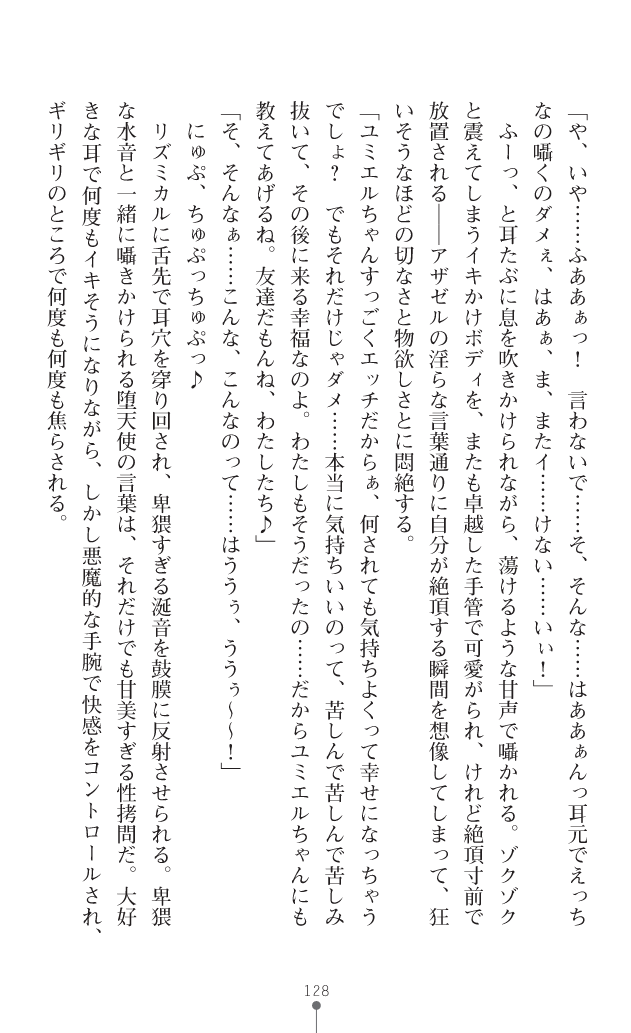 「や、いや……ふああぁっ！　言わないで……そ、そんな……はああぁんっ耳元でえっち
なの囁くのダメぇ、はあぁ、ま、またイ……けない……いぃ！」
　ふーっ、と耳たぶに息を吹きかけられながら、蕩けるような甘声で囁かれる。ゾクゾク
と震えてしまうイキかけボディを、またも卓越した手管で可愛がられ、けれど絶頂寸前で
放置される――アザゼルの淫らな言葉通りに自分が絶頂する瞬間を想像してしまって、狂
いそうなほどの切なさと物欲しさとに悶絶する。
「ユミエルちゃんすっごくエッチだからぁ、何されても気持ちよくって幸せになっちゃう
でしょ？　でもそれだけじゃダメ……本当に気持ちいいのって、苦しんで苦しんで苦しみ
抜いて、その後に来る幸福なのよ。わたしもそうだったの……だからユミエルちゃんにも
教えてあげるね。友達だもんね、わたしたち♪」
「そ、そんなぁ……こんな、こんなのって……はううぅ、ううぅ～～！」
　にゅぷ、ちゅぷっちゅぷっ♪
　リズミカルに舌先で耳穴を穿り回され、卑猥すぎる涎音を鼓膜に反射させられる。卑猥
な水音と一緒に囁きかけられる堕天使の言葉は、それだけでも甘美すぎる性拷問だ。大好
きな耳で何度もイキそうになりながら、しかし悪魔的な手腕で快感をコントロールされ、
ギリギリのところで何度も何度も焦らされる。
128